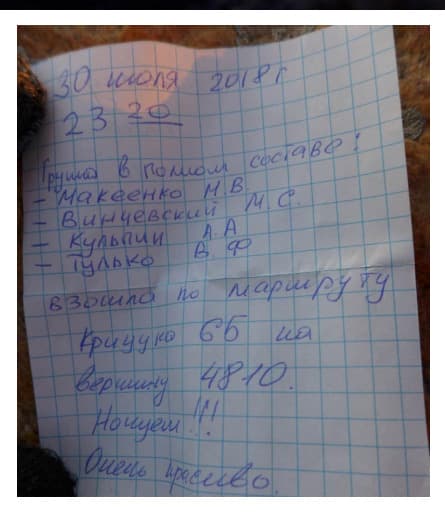 30 июля 2018г
23 20
Группа в полном составе:
- Макеенко Н.В.
- Винчевский М.С.
- Кульпин А.А
- Гулько В.Ф
взошла по маршруту
Крицука 6Б на
вершину 4810.
Ночуем!!!
Очень красиво.